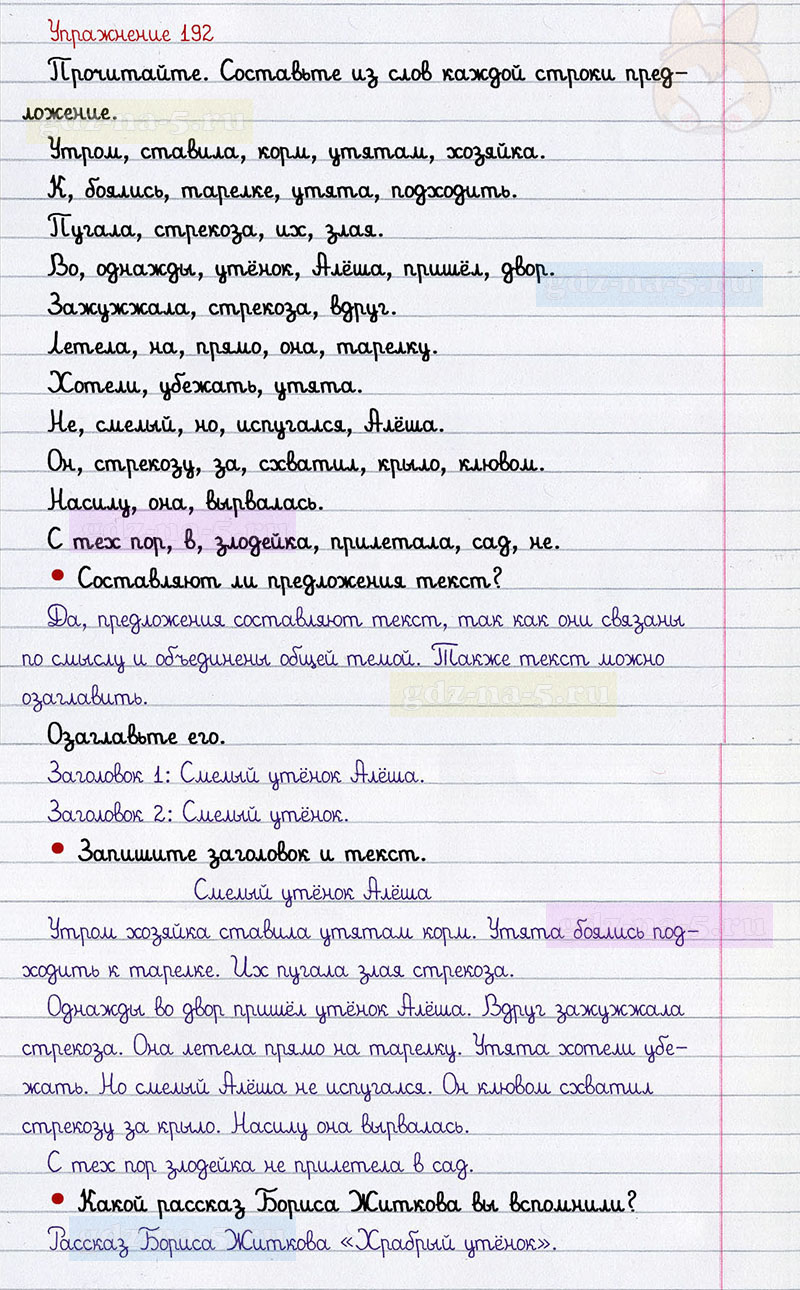 Упражнение 192
Прочитайте. Составьте из слов каждой строки пред-
ложение.
gdz-na-5.ru
Утром, ставила, корм, утятам, хозяйка.
К, боялись, тарелке, утята, подходить.
Пугала, стрекоза, их, злая.
Во, однажды, утёнок, Алёша, пришёл, двор.
gdz-na-5.ru
Зажужжала, стрекоза, вдруг.
Летела, на, прямо, она, тарелку.
Хотели, убежать, утята.
Не, смелый, но, испугался, Алёша.
Он, стрекозу, за, схватил, крыло, клювом.
Насилу, она, вырвалась.
gdz-na-5.ru
С тех пор, в, злодейка, прилетала, сад, не.
• Составляют ли предложения текст?
Да, предложения составляют текст, так как они связаны
по смыслу и объединены общей темой. Также текст можно
озаглавить.
gdz-na-5.ru
Озаглавьте его.
Заголовок 1: Смелый утёнок Алёша.
Заголовок 2: Смелый утёнок.
• Запишите заголовок и текст.
Смелый утёнок Алёша
gdz-na-5.ru
Утром хозяйка ставила утятам корм. Утята боялись под-
ходить к тарелке. Их пугала злая стрекоза.
Однажды во двор пришёл утёнок Алёша. Вдруг зажужжала
стрекоза. Она летела прямо на тарелку. Утята хотели убе-
жать. Но смелый Алёша не испугался. Он клювом схватил
стрекозу за крыло. Насилу она вырвалась.
С тех пор злодейка не прилетела в сад.
• Какой рассказ Бориса Житкова вы вспомнили?
gdz-na-5.ru
Рассказ Бориса Житкова «Храбрый утёнок».